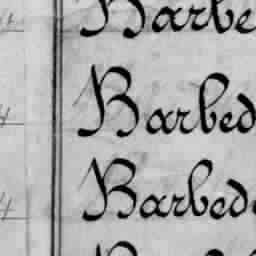 Barbe
Barbed
Barbed